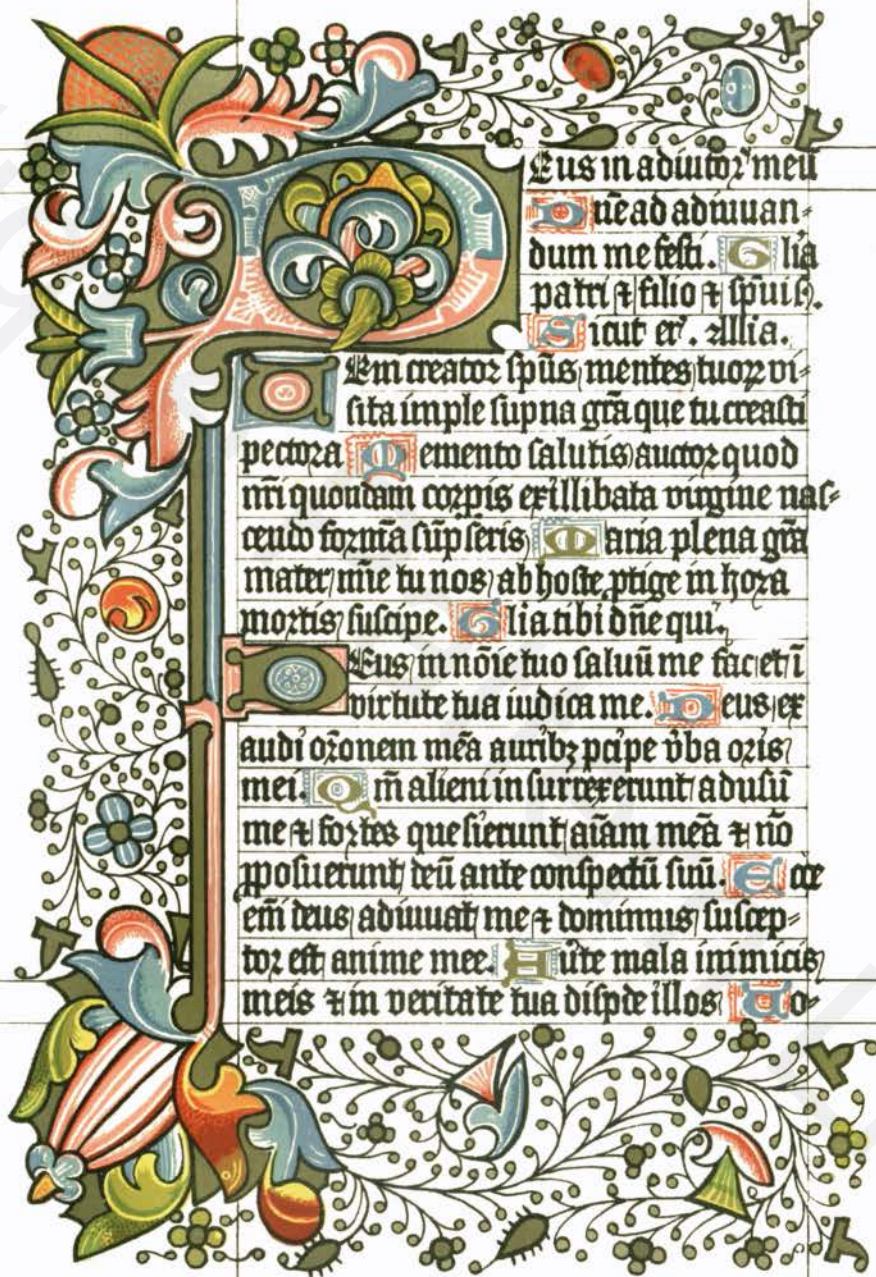 Deus in adiutor' meū
Dn̄e ad adiuuan-
dum me festi. Glīa
patri ⁊ filio ⁊ sp̄ui s̄.
Sicut er'. Allīa.
Vem creator sp̄us mentes tuoꝝ vi-
sita imple sup̄na gr̄a que tu creasti
pectora Memento salutis auctor quod
nr̄i quondam corp̄is ex illibata virgine nas-
cendo formā sūpseris Maria plena gr̄a
mater mīe tu nos ab hoste ꝓtige in hora
mortis suscipe. Glīa tibi dn̄e qui.
Deus in nōie tuo saluū me fac et ī
virtute tua iudica me. Deus ex
audi orōnem meā auribꝫ pcipe v̄ba oris
mei. Qm̄ alieni insurrexerunt adusū
me ⁊ fortes quesierunt aīam meā ⁊ nō
ꝓposuerunt deū ante conspectū suū. Ecce
em̄ deus adiuuat me ⁊ dominus suscep-
tor est anime mee. Aūte mala inimicis
meis ⁊ in veritate tua dispde illos Uo-